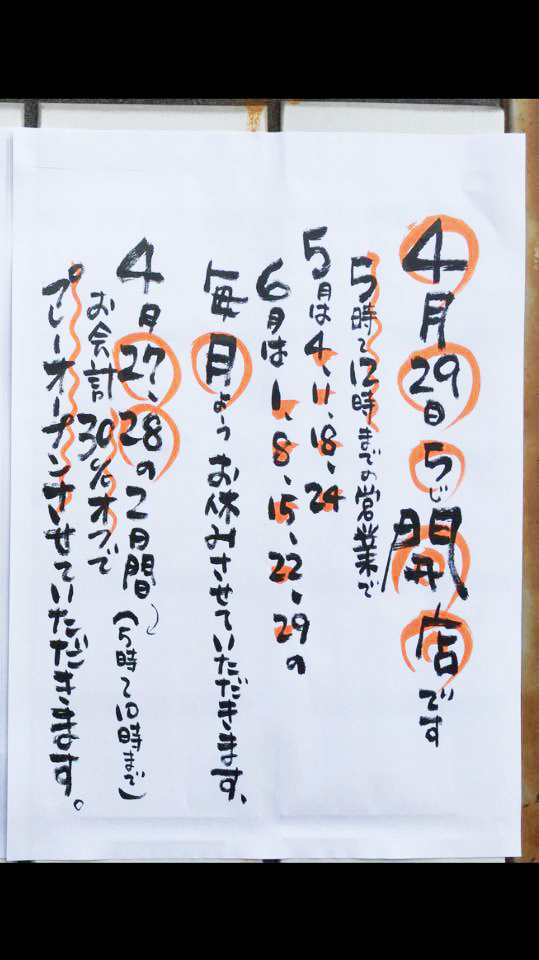 4月29日5じ開店です
5時〜12時までの営業で
5月は4、11、18、24
6月は1、8、15、22、29の
毎月ようお休みさせていただきます、
4月27、28の2日間(5時〜10時まで)
お会計30%オフで
プレーオープンさせていただきます。